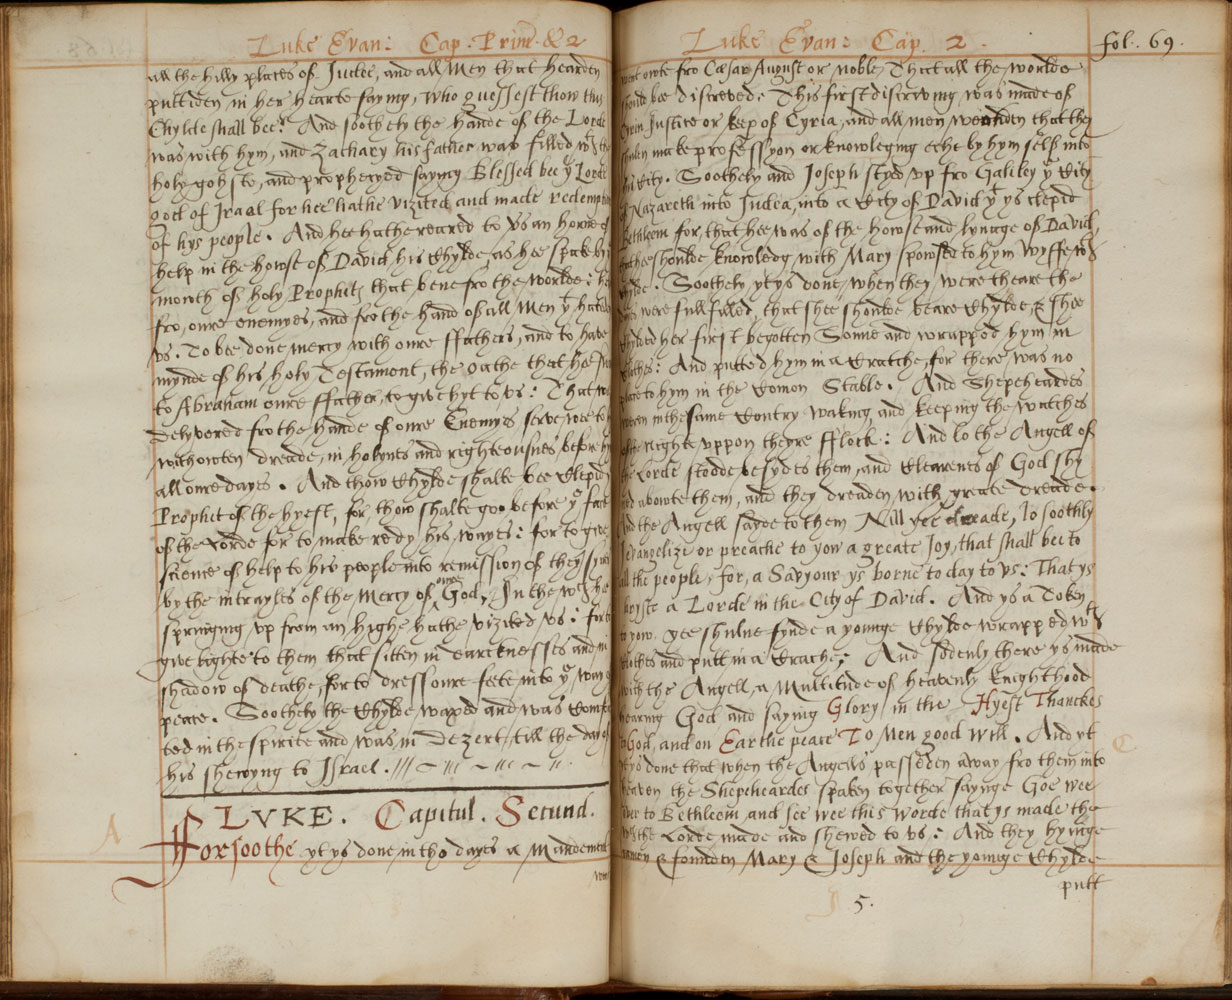 Luke Evan: Cap: Prim: & 2
all the hilly places of Judee, and all Men that hearden
puttiden in her hearte saying, Who guessest thow this
Chylde shall bee? And soothely the hande of the Lorde
was with hym, and Zachary his father was filled wth the
holy gohste, and prophecyed saying Blessed bee ye Lorde
god of Israel for hee hathe vizited and made redemption
of hys people. And hee hathe reared to Vs an horne of
help in the howse of David his Chylde, as hee spake by
mowth of holy Prophetz that bene fro the worlde:
fro, oure enemyes, and fro the hand of all Men yt hateden
vs. To bee done mercy with oure ffathers, and to have
mynde of his holy Testament, the oathe that hee
to Abraham oure ffather, to give hyt to vs: That
delyvered fro the hande of oure Enemyes serve wee to
withowten dreade, in holynes and righteousnes, before
all oure dayes. And thow Chylde shalte bee Clepid
Prophet of the hyest, for, thow shalte go before ye face
of the Lorde for to make redy his wayes: for to give
science of help to his people into remission of they synnes
by the intrayles of the mercy of oure God, In the wch hee
springing vp from an highe hathe vizited vs: for to
give lighte to them that sitten in darcknesses and in
shadow of deathe, for to dress oure feete into ye way of
peace. Soothely the Chylde waxed and was Comforted
ted in the spirite and was in dezert till the day of
his shewyng to Israel.
LVKE. Capitul. Secund.
A
fforsoothe yt ys done, in tho dayes a Mandement
Luke Evan: Cap. 2.
fol. 69.
went owte fro Cæsar August or noble, That all the worlde
shoulde bee discreved: This first discriving was made of
Cyrin Justice or keep of Cyria, and all men wenden that they
shulen make professyon or knowleging eche by hym self into
his City. Soothely and Joseph styed vp fro Galiley ye City
of Nazareth into Judea, into a City of David yt ys clepid
Bethleem for, that hee was of the howse and lynage of David,
that hee shoulde knowledg with Mary spowsed to hym wyffe wth
Chylde. Soothely yt ys done, when they were theare the
dayes were fullfilled, that shee shoulde beare Chylde, & shee
Chylded her first begotten Sonne and wrapped hym in
Clothes: And putted hym in a Cratche, for there was no
place to hym in the Comon Stable. And Shepeheardes
weren in the same Contry waking and keeping the watches
of the nighte vppon theyre fflock: And lo the Angell of
the Lorde stoode besydes them, and Clearenes of God shy
ned abowte them, and they dreaden with greate dreade.
And the Angell sayde to them Nill yee dreade, lo soothly
I evangelize or preache to yow a greate Joy, that shall bee to
all the people, for, a Savyour ys borne to day to vs: That ys
Cryste a Lorde in the City of David. And ys a Token
to yow. yee shulne fynde a younge Chylde wrapped wth
Clothes and putt in a Crache; And sodenly there ys made
with the Angell, a Multitude of heavenly knighthood
hearing God and saying Glory in the Hyest Thanckes
to God, and on Earthe peace To Men good will. And yt
C
ys done that when the Angells passeden away fro them into
heaven the Shepeheardes spaken together sayinge Goe wee
over to Bethleem and see wee this worde that ys made the
wch the Lorde made and shewed to vs: And they hyinge
camen & founden Mary & Joseph and the younge Chylde
putt
5.